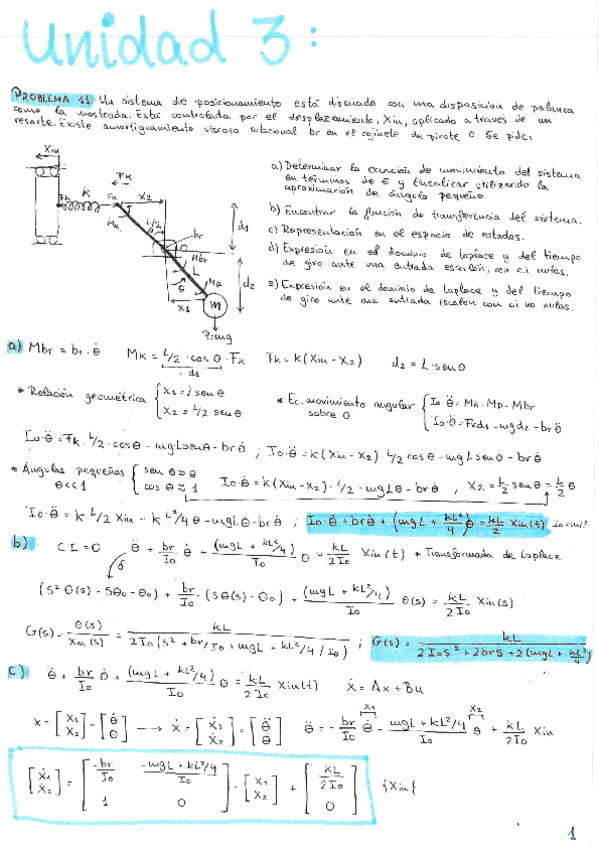 Unidad 3:
PROBLEMA 11 Un sistema de posicionamiento está diseñado con una disposición de palanca
como la mostrada. Está controlada por el desplazamiento, Xin, aplicado a través de un
resorte. Existe amortiguamiento viscoso rotacional br en el cojinete de pivote O. Se pide:
a) Determinar la ecuación de movimiento del sistema
en términos de θ y linealizar utilizando la
aproximación de ángulo pequeño
b) Encontrar la función de transferencia del sistema.
c) Representación en el espacio de estados.
d) Expresión en el dominio de laplace y del tiempo
de giro ante una entrada escalón, con ci nulas.
e) Expresión en el dominio de laplace y del tiempo
de giro ante una entrada escalón con ci no nulas.
Xin
FK
X2
K
Fk
MK
L/2
br
d1
Mbr
L
θ
MP
d2
m
X1
P=mg
a) Mbr = br·θ̇ MK = L/2 · cos θ · FK FK = K (Xin - X2) d2 = L·sen θ
d1
* Relación geométrica { X1 = L sen θ
X2 = L/2 sen θ
* Ec. movimiento angular sobre O { Io θ̈ = MK - MP - Mbr
Io·θ̈ = FKd1 - mgd2 - brθ̇
Io·θ̈ = FK·L/2·cosθ - mgLsenθ - brθ̇ ; Io·θ̈ = K(Xin - X2)·L/2 cosθ - mgLsenθ - brθ̇
* Ángulos pequeños θ<<1 { sen θ ≈ θ
cos θ ≈ 1
Io·θ̈ = K(Xin - X2)·L/2 - mgLθ - brθ̇ , X2 = L/2 senθ = L/2 θ
Io·θ̈ = K L/2 Xin - K L²/4 θ - mgLθ - brθ̇ ; Io·θ̈ + brθ̇ + (mgL + KL²/4)θ = KL/2 Xin(t)
b) CI=0 θ̈ + br/Io θ̇ + (mgL + KL²/4)/Io θ = KL/2Io Xin(t) * Transformada de Laplace
(s²θ(s) - sθo - θo) + br/Io · (sθ(s) - θo) + (mgL + KL²/4)/Io θ(s) = KL/2Io Xin(s)
G(s) = θ(s)/Xin(s) = KL/2Io(s² + br/Io + mgL + KL²/4/Io) ; G(s) = KL/2Ios² + 2brs + 2(mgL + KL²/4)
c) θ̈ + br/Io θ̇ + (mgL + KL²/4)/Io θ = KL/2Io Xin(t) Ẋ = Ax + Bu
x = [X1 X2] = [θ̇ θ] → ẋ = [Ẋ1 Ẋ2] = [θ̈ θ̇] θ̈ = -br/Io θ̇ - mgL + KL²/4/Io θ + KL/2Io Xin
X1
X2
[Ẋ1 Ẋ2] = [-br/Io -mgL + KL²/4/Io 1 0] · [X1 X2] + [KL/2Io 0] {Xin}
1